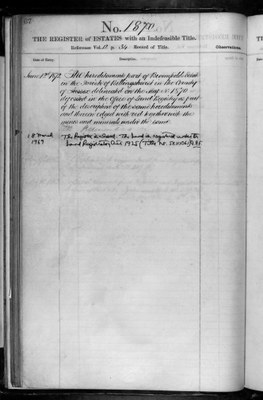 No. 1870
THE REGISTER OF ESTATES with an Indefeasible Title.
Reference Vol. p. Record of Title.
Date of Entry.
Description.
Observations.
June 1st 1872 The hereditaments part of Broomfield Estate
in the Parish of in the County
of Sussex delineated on the Map No 1870
deposited in the Office of Land Registry as part
of the description of the same hereditaments
and thereon edged with red together with the
mines and minerals under the same
18 March
1969
The Register is closed. The land is registered under the
Land Registration Act 1925 (Title No.